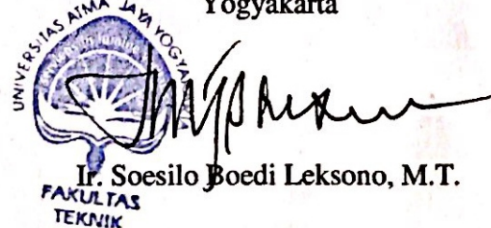 Yogyakarta
UNIVERSITAS ATMA JAYA YOGYA
Ir. Soesilo Boedi Leksono, M.T.
FAKULTAS
TEKNIK